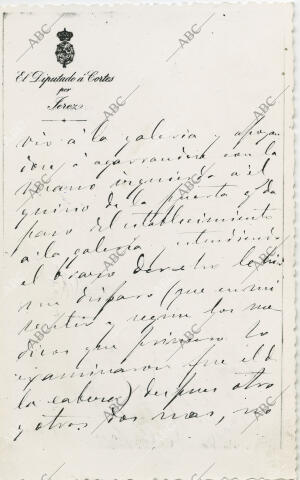 El Diputado á Cortes
por
Jerez
vio á la galeria y apoyan
dose o agarrandose con la
mano izquierda al
quicio de la puerta q da
paso del establecimiento
a la galeria, extendiendo
el brazo derecho le hi
un disparo (que en mi
sentir y segun los me
dicos que primero lo
examinaron fue el d
la cabeza) despues otro
y otros dos mas, no
ABC